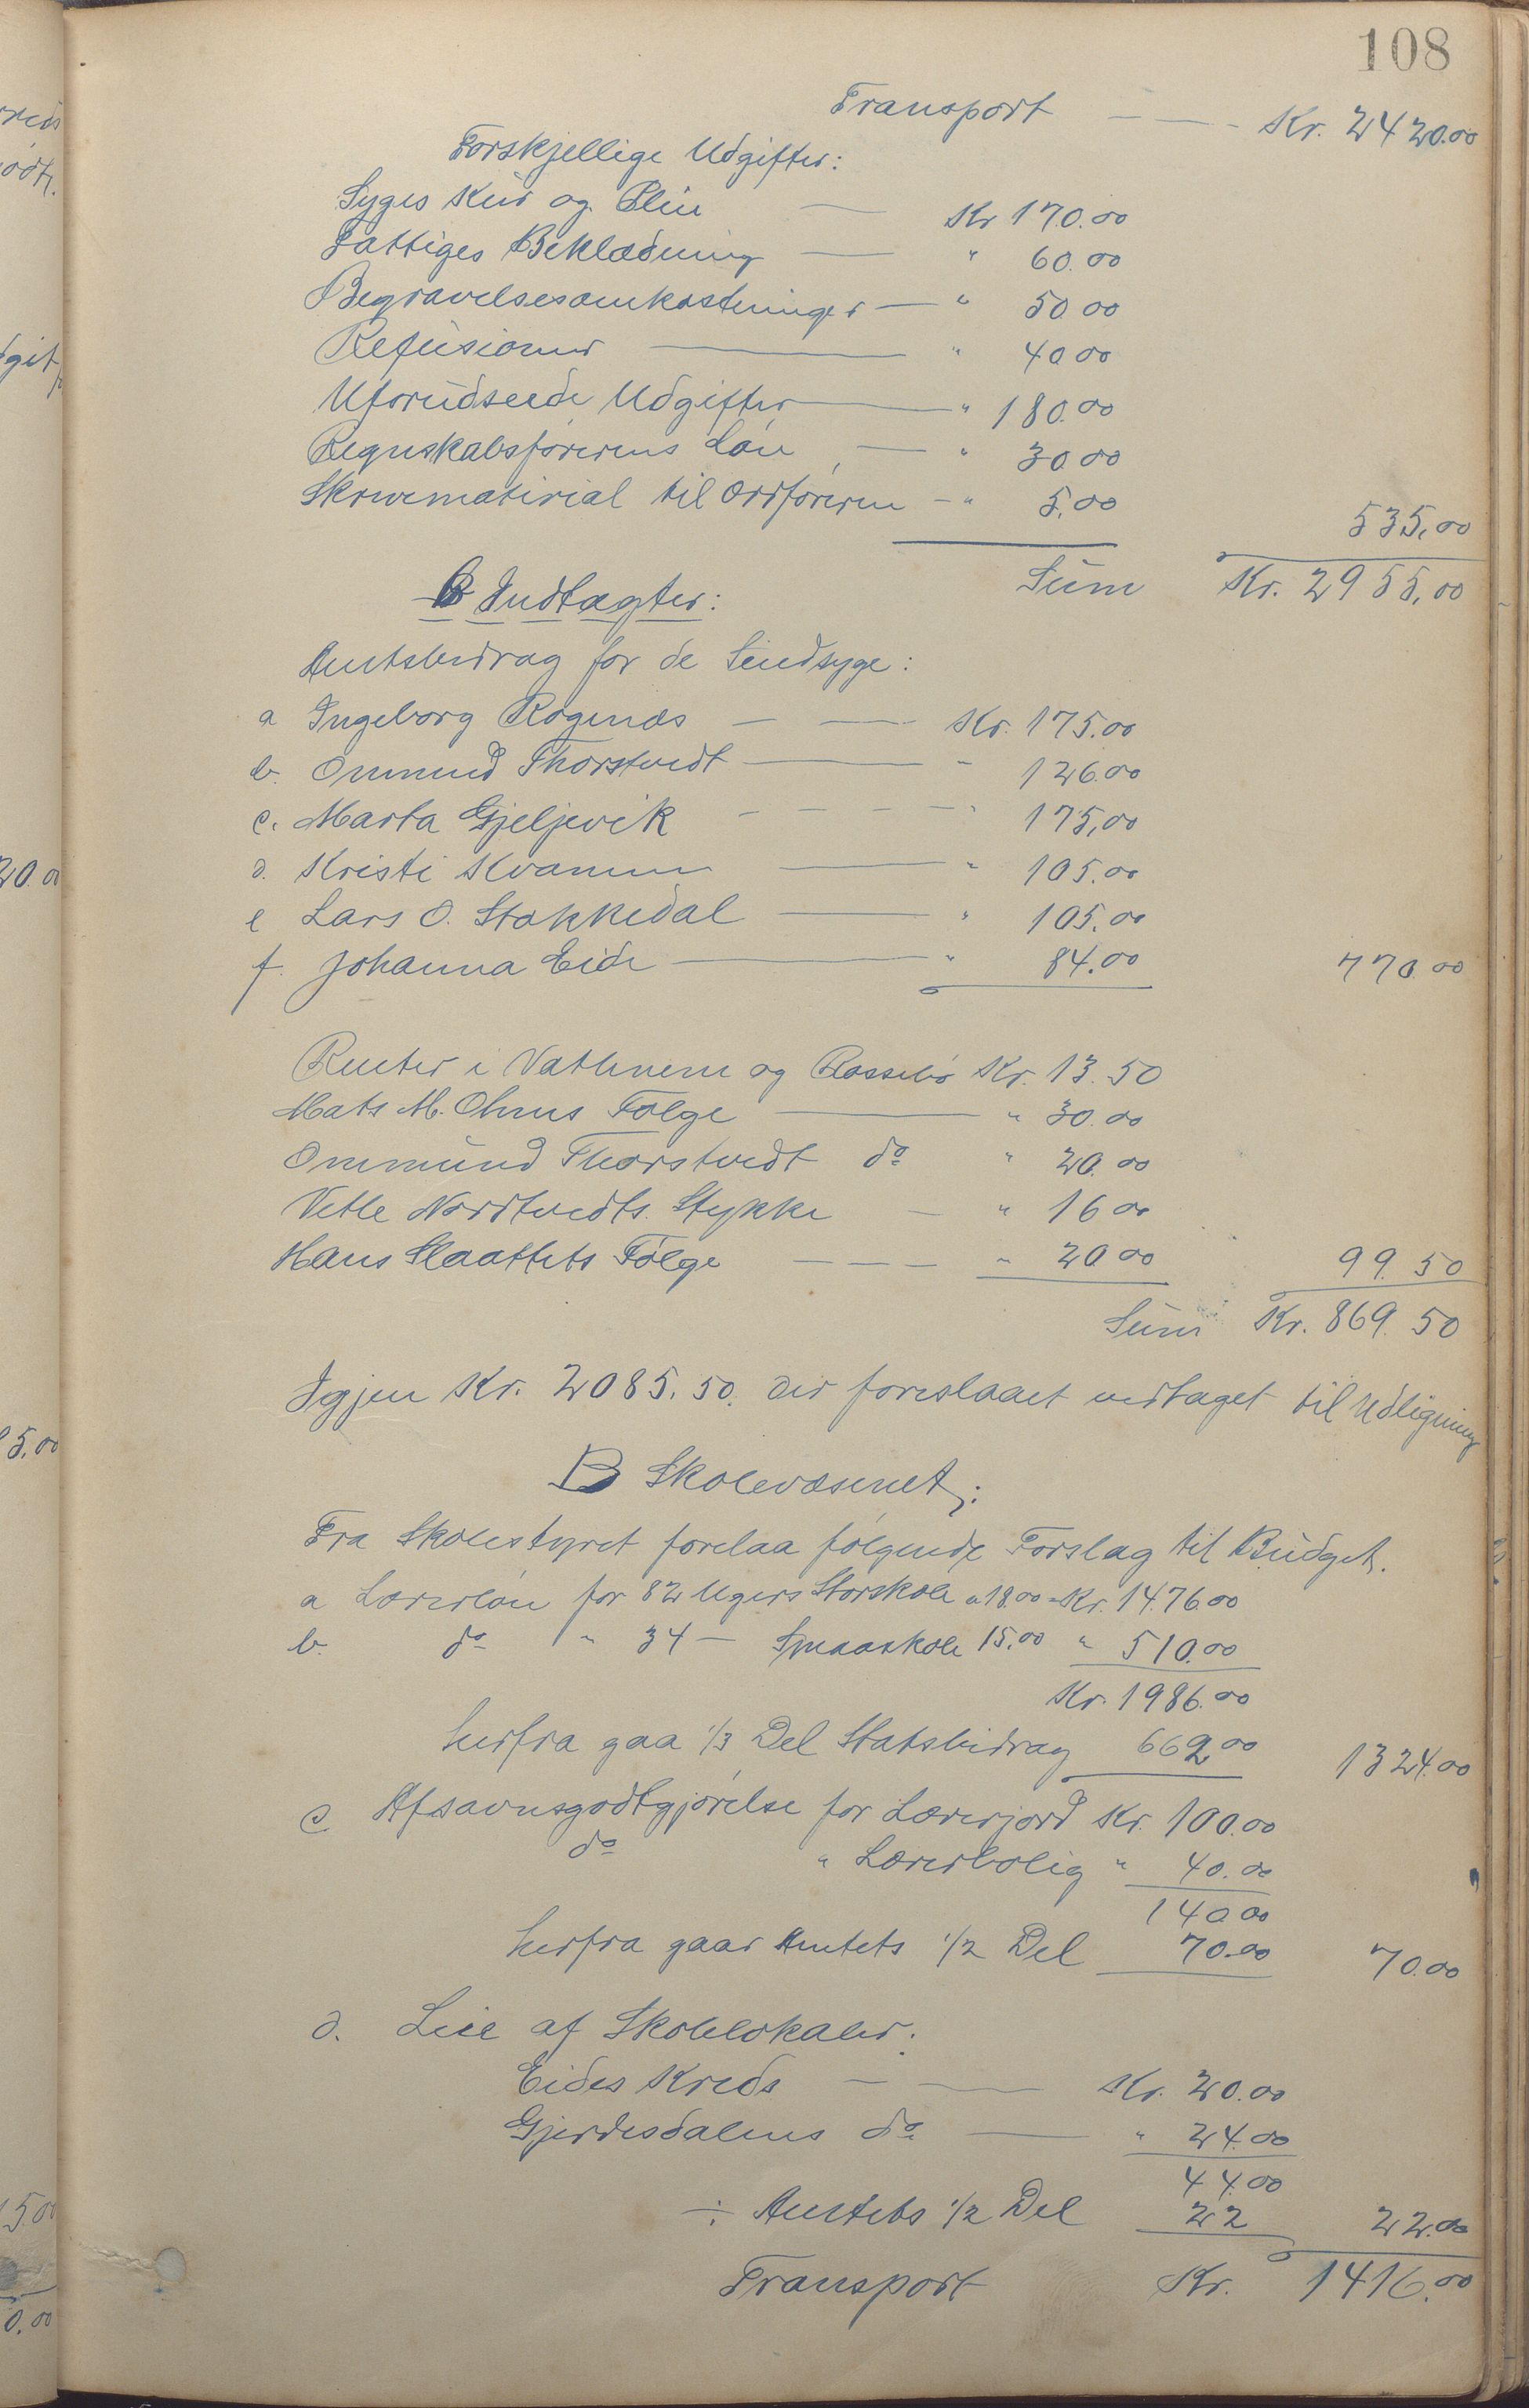 108
Transport — — Kr. 2420.00
Forskjellige Udgifter:
Syges Kur og Pleie — Kr 170.00
Fattiges Beklædning — " 60.00
Begravelsesomkostninger — " 50.00
Refusioner — " 40.00
Uforudseede Udgifter — " 180.00
Regnskabsførerens Løn — " 30.00
Skrivematerial til Ordføreren — " 5.00 535,00
Sum Kr. 2955,00
B Indtægter:
Amtsbidrag for de Sindsyge:
a Ingeborg Røgenæs — — Kr. 175.00
b. Ommund Thorstvedt — " 126.00
c. Marta Gjeljevik - - - - " 175,00
d. Kristi Kvamme — " 105.00
e Lars O. Stokkedal — " 105.00
f. Johanna Eide — " 84.00 770.00
Renter i Vathnene og Rossebø Kr. 13.50
Mats M. Ohms Følge — " 30.00
Ommund Thorstvedt do " 20.00
Vetle Nordtvedts Stykke — " 16 00
Hans Slaattets Følge — — — " 20 00 99.50
Sum Kr. 869.50
Igjen Kr. 2085.50. der foreslaaet vedtaget til Udligning
B Skolevæsenet:
Fra Skolestyret forelaa følgende Forslag til Budget.
a Lærerløn for 82 Ugers Storskole a 18.00 = Kr. 1476.00
b. do " 34 — Smaaskole 15.00 " 510.00
Kr. 1986.00
herfra gaa 1/3 Del Statsbidrag 662.00 1324.00
c Afsavnsgodtgjørelse for Lærerjord Kr. 100.00
do " Lærerbolig " 40.00
140.00
herfra gaar Amtets 1/2 Del 70.00 70.00
d. Leie af Skolelokaler:
Eides Kreds — — Kr. 20.00
Gjerdesdalens do — " 24.00
44.00
÷ Amtets 1/2 Del 22 22.00
Transport Kr. 1416.00